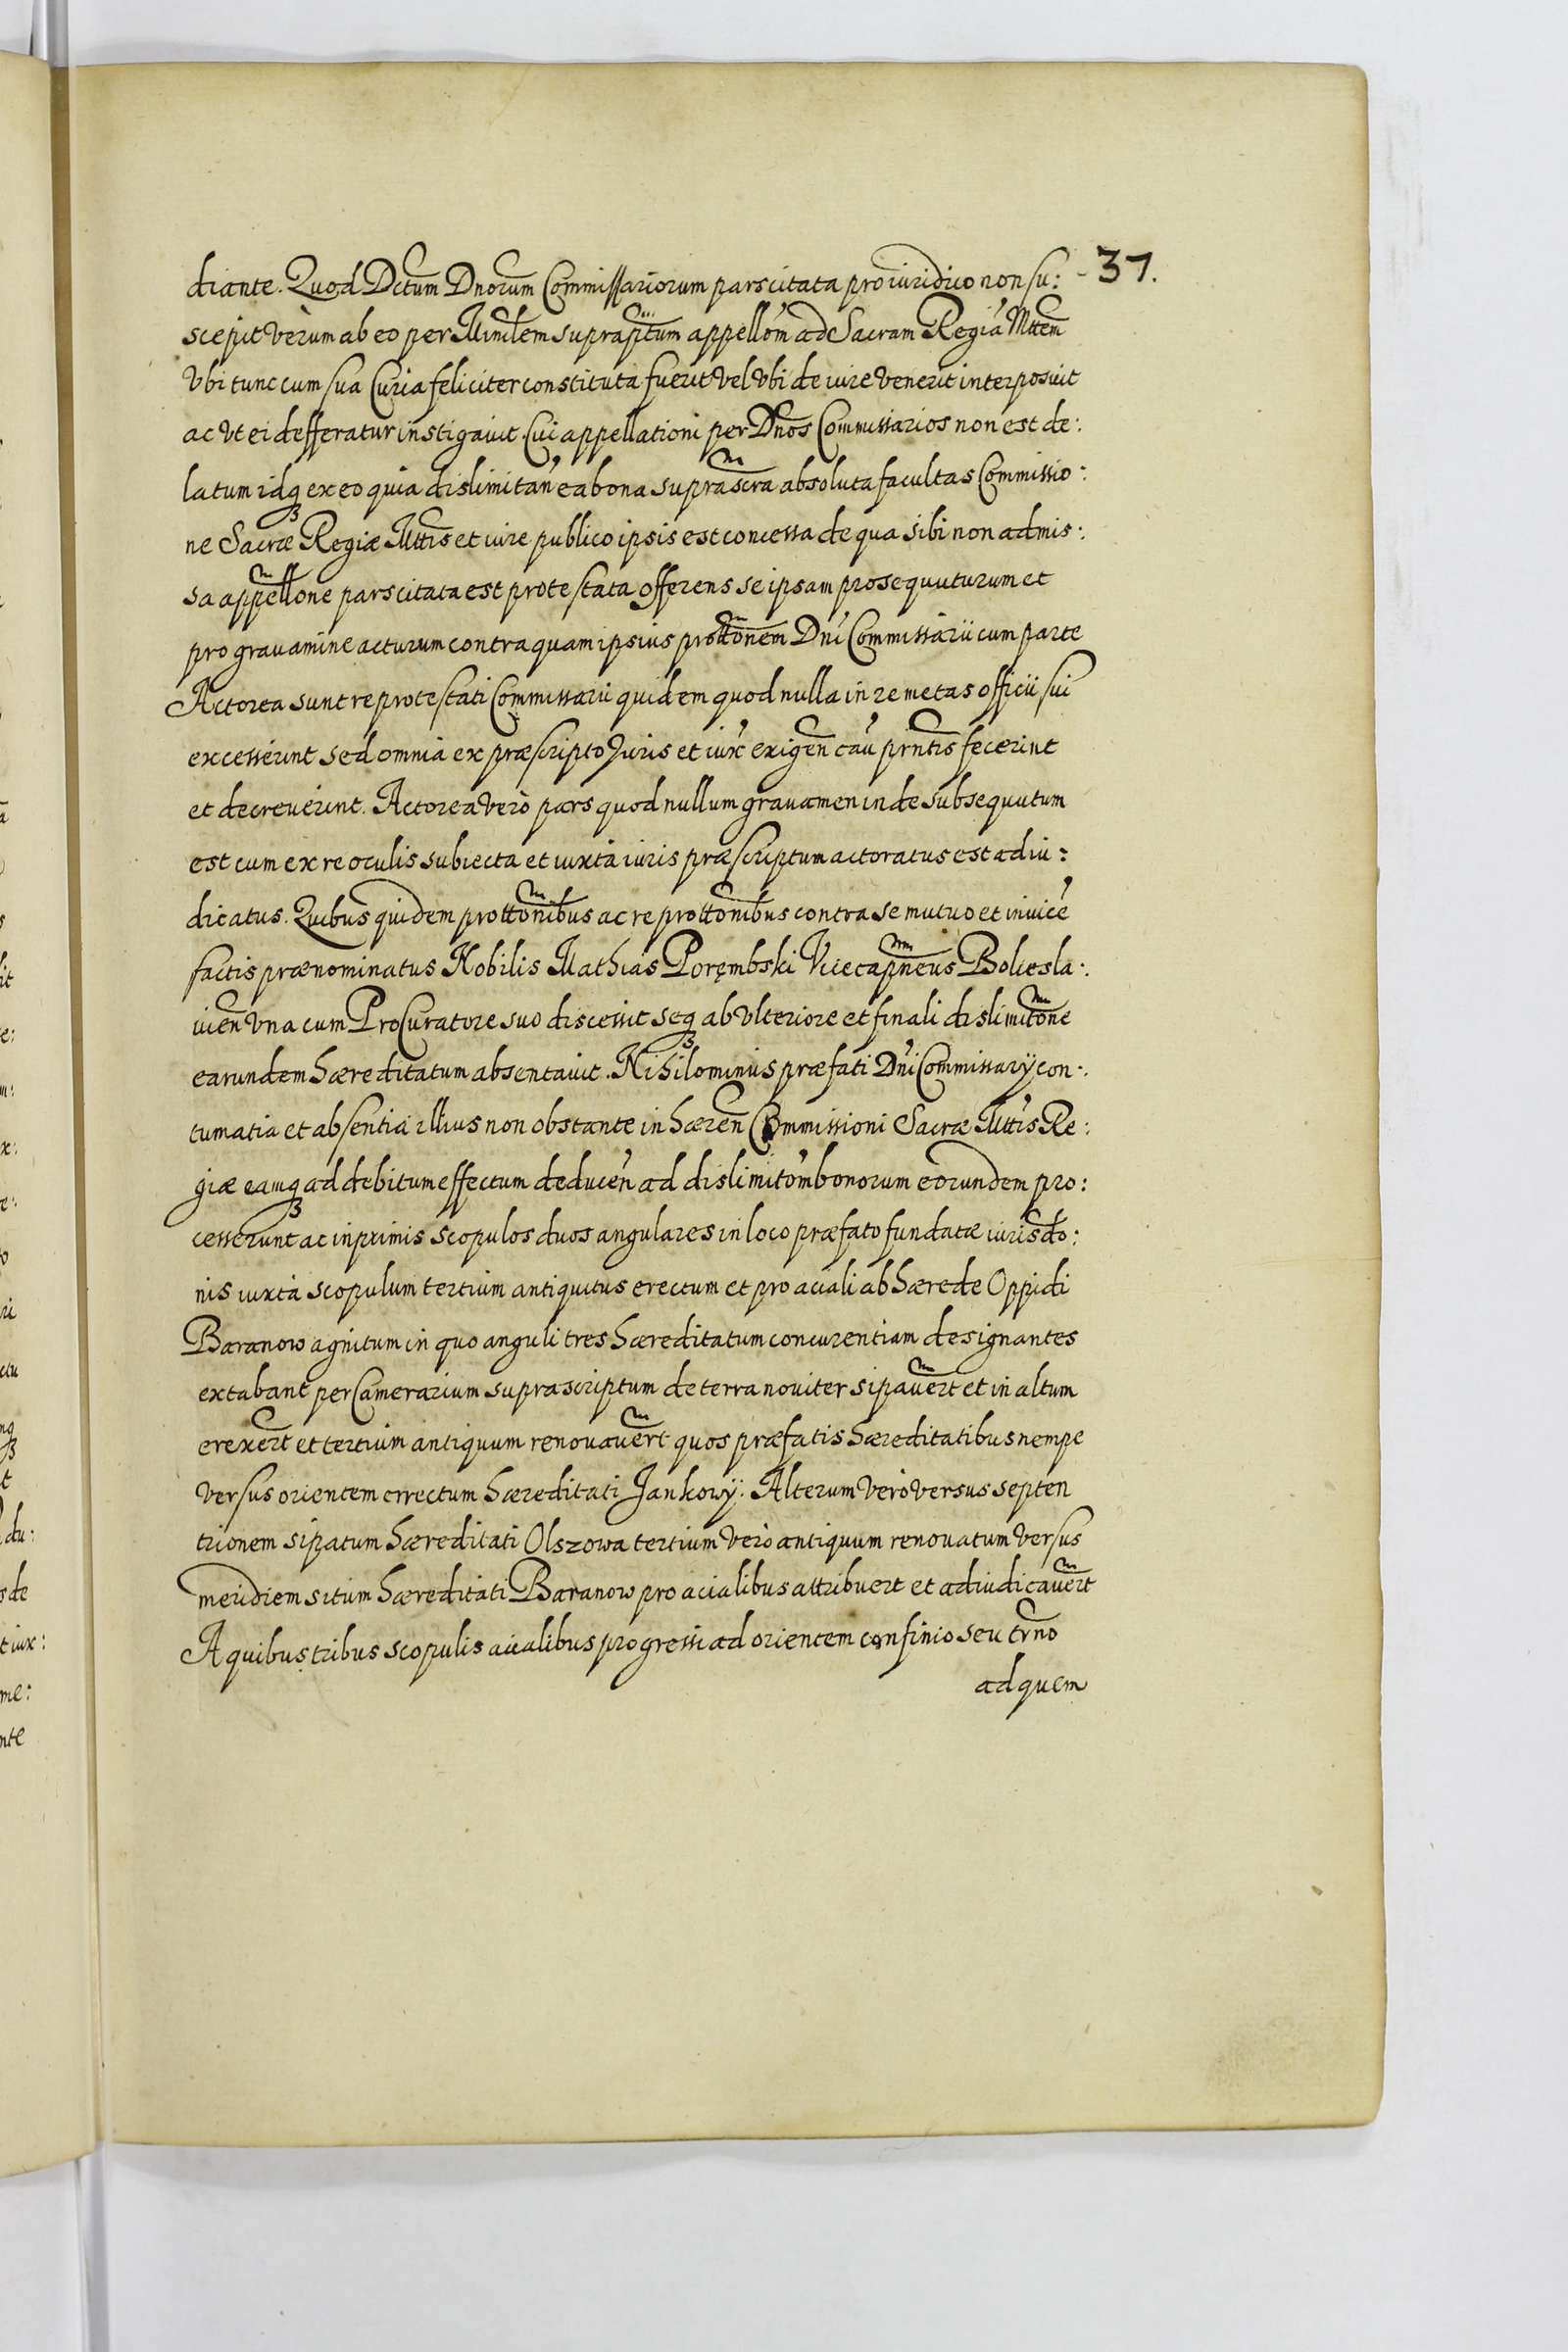 37.
diante. Quod Dctum Dnorum Commissariorum pars citata pro iuridico non su:
scepit verum ab eo per Mimlem supraptum appellom ad Sacram Regia Mttem
Vbi tunc cum sua Curia feliciter constituta fuerit vel Vbi de iure venerit interposuit
ac Vt ei defferatur instigauit. Cui appellationi per Dnos Commissarios non est de:
latum idq ex eo quia dislimitan ea bona suprascra absoluta facultas Commissio:
ne Sacræ Regiæ Mttis et iure publico ipsis est concessa de qua sibi non admis:
sa appellone pars citata est protestata offerens se ipsam prosequuturum et
pro grauamine acturum contra quam ipsius prottonem Dni Commissarii cum parte
Actorea sunt reprotestati Commissarii quidem quod nulla in re metas officii sui
excesserint sed omnia ex præscripto Juris et iux exigen cau prntis fecerint
et decreuerint. Actorea vero pars quod nullum grauamen inde subsequutum
est cum ex re oculis subiecta et iuxta iuris præscriptum actoratus est adiu:
dicatus. Quibus quidem prottonibus ac reprottonibus contra se mutuo et inuice
factis prænominatus Nobilis Mathias Porębski Vicecapneus Boliesla:
uien Vna cum ProCuratore suo discessit seq ab Vlteriore et finali dislimitone
earundem hæreditatum absentauit. Nihilominus præfati Dni Commissarÿ con:
tumatia et absentia illius non obstante inhæren Commissioni Sacræ Mttis Re:
giæ eamq ad debitum effectum deducen ad dislimitom bonorum eorundem pro:
cesserunt ac inprimis scopulos duos angulares in loco præfato fundatæ iurisdo:
nis iuxta scopulum tertium antiquitus erectum et pro aciali ab hærede Oppidi
Baranow agnitum in quo anguli tres hæreditatum concurentiam designantes
extabant per Camerarium suprascriptum de terra nouiter sipauert et in altum
erexert et tertium antiquum renouauert quos præfatis hæreditatibus nempe
versus orientem errectum hæreditati Jankowÿ. Alterum vero versus septen
trionem sipatum hæreditati Olszowa tertium vero antiquum renouatum versus
meridiem situm hæreditati Baranow pro acialibus attribuert et adiudicauert
A quibus tribus scopulis acialibus progressi ad orientem confinio seu trno
ad quem